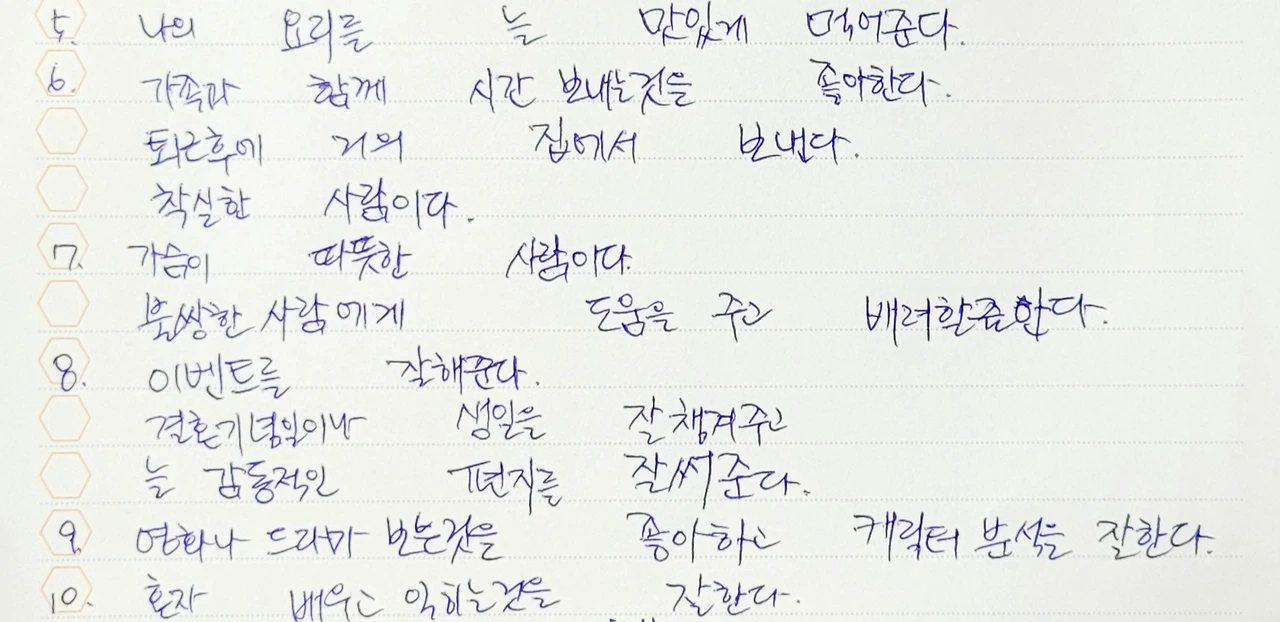 5. 나의 요리를 늘 맛있게 먹어준다.
6. 가족과 함께 시간 보내는것을 좋아한다.
퇴근후에 거의 집에서 보낸다.
착실한 사람이다.
7. 가슴이 따뜻한 사람이다.
불쌍한 사람에게 도움을 주고 배려할줄안다.
8. 이벤트를 잘해준다.
결혼기념일이나 생일을 잘챙겨주고
늘 감동적인 편지를 잘써준다.
9. 영화나 드라마 보는것을 좋아하고 캐릭터 분석을 잘한다.
10. 혼자 배우고 익히는것을 잘한다.